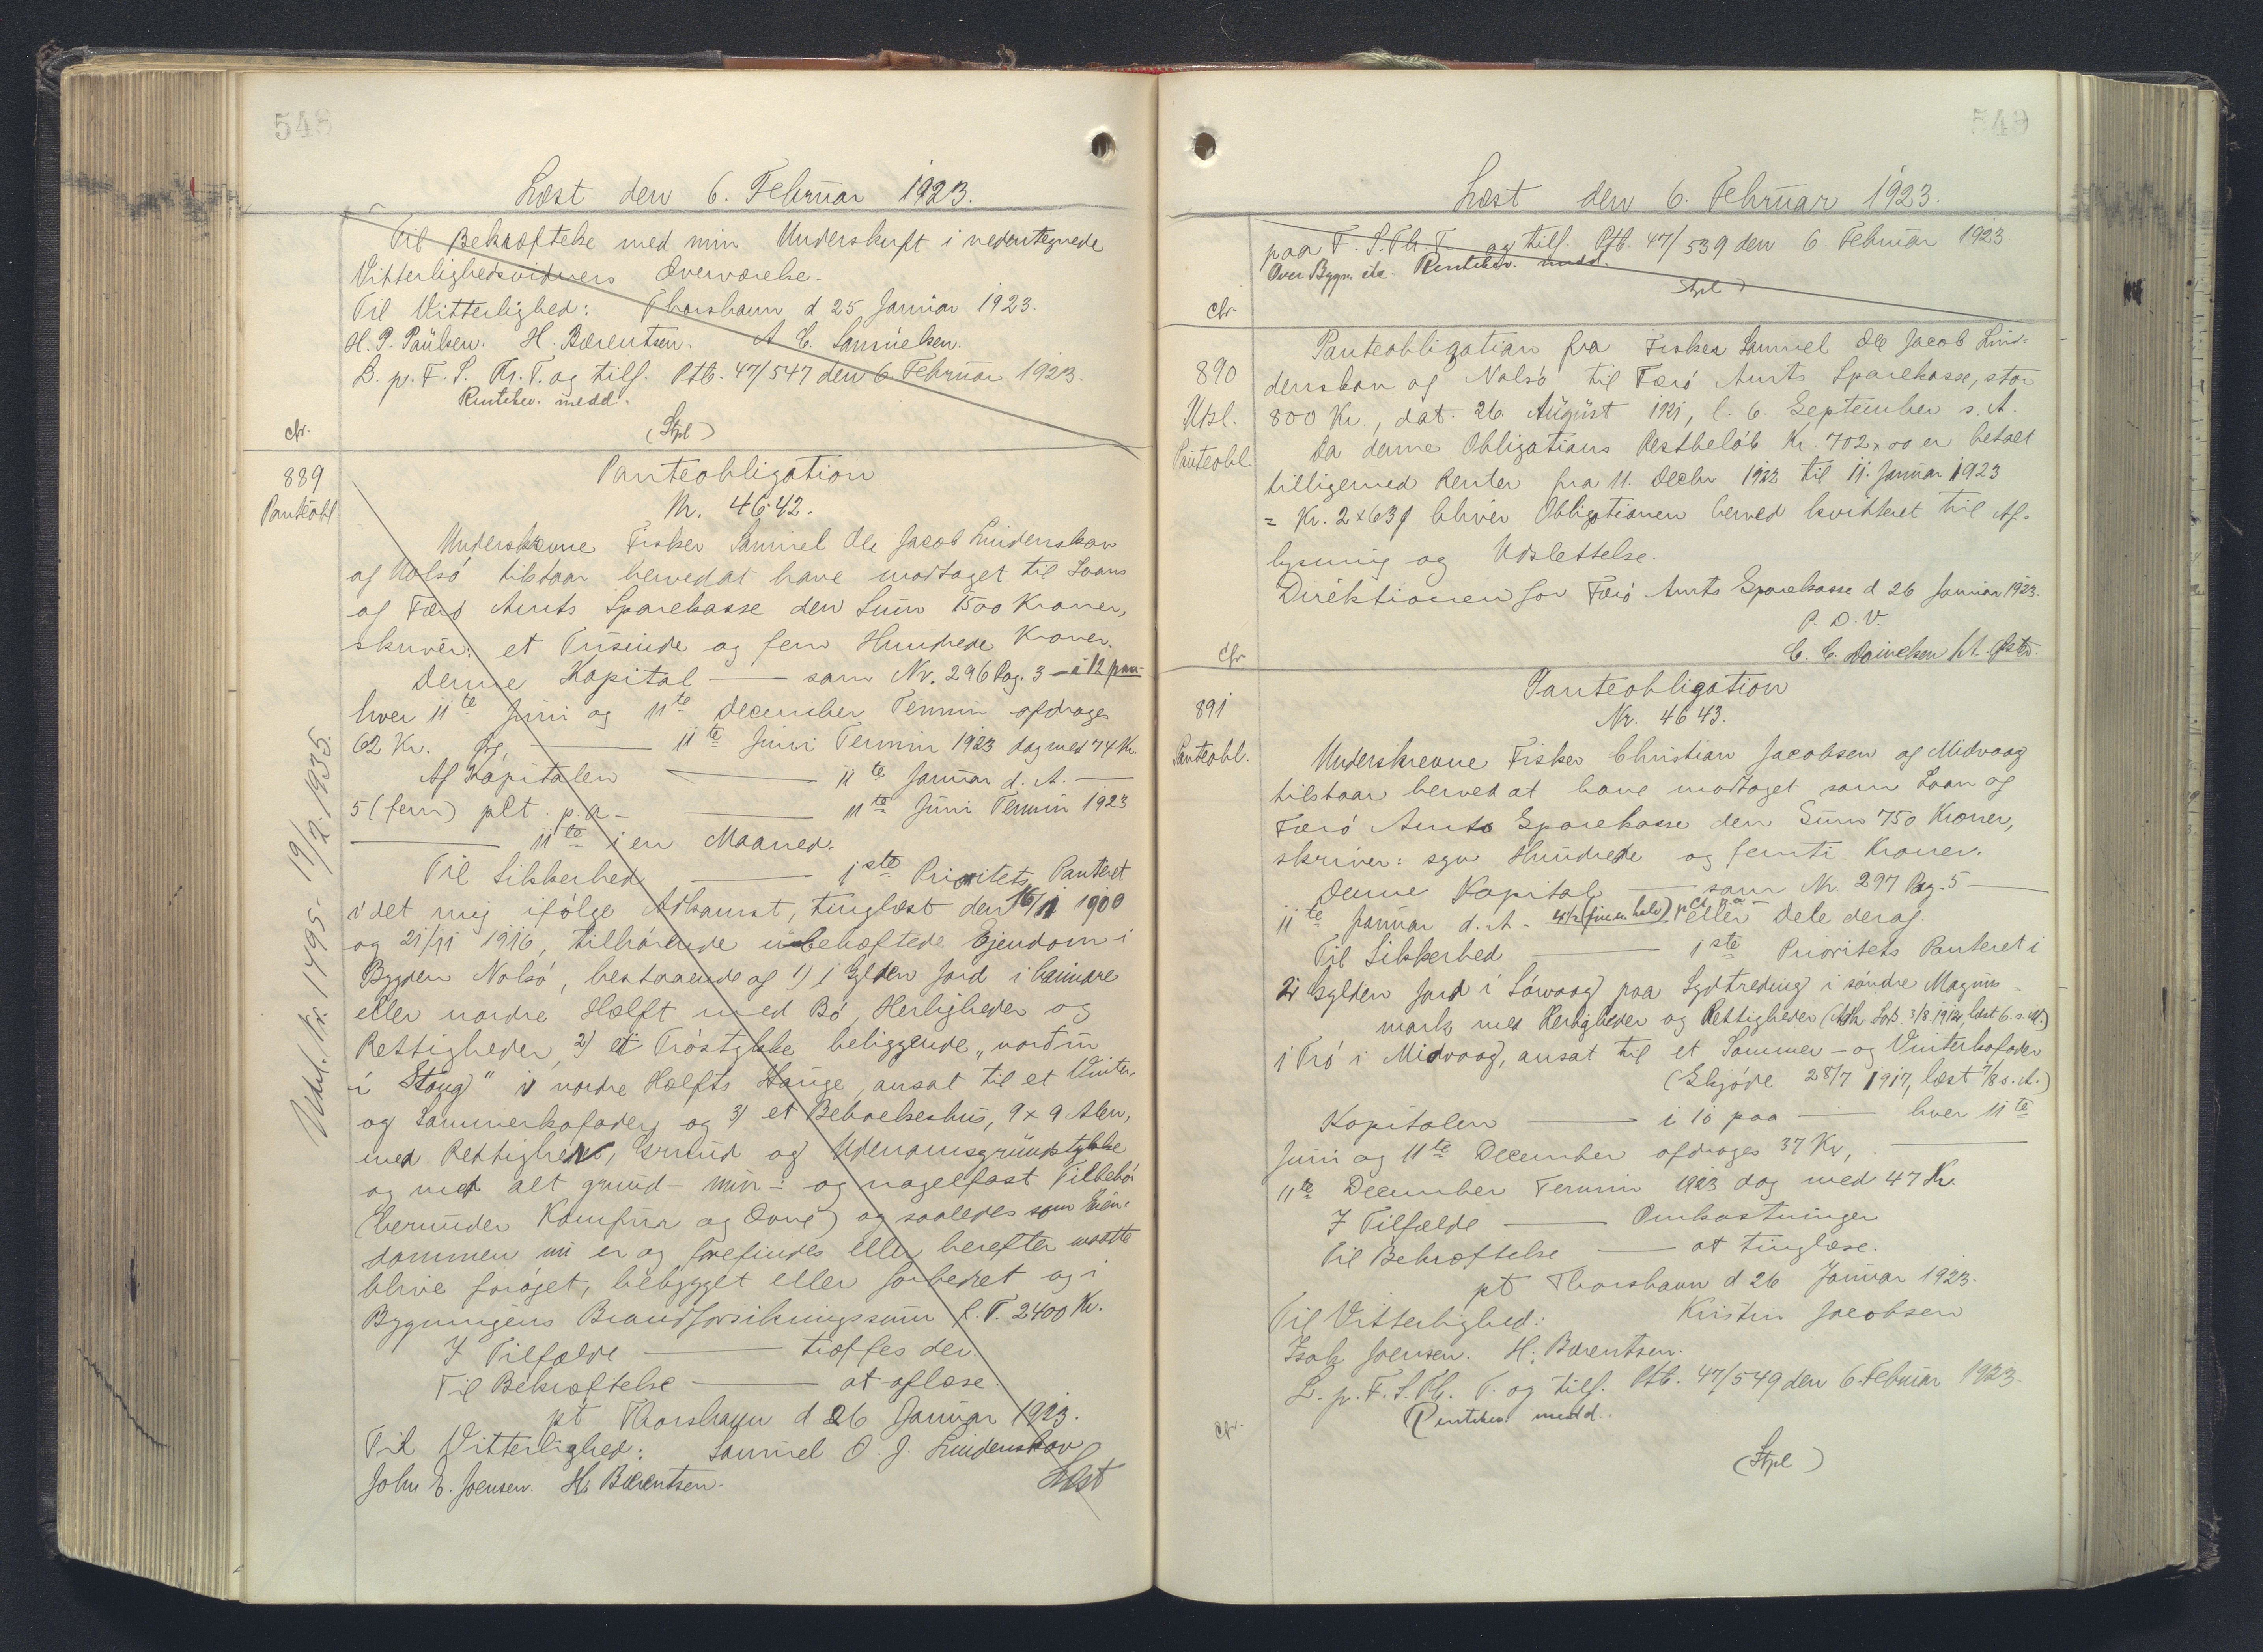 548
Læst den 6. Februar 1923.
Til Bekræftelse med min Underskrift i nedentegnede
Vitterlighedsvidners Overværelse.
Til Vitterlighed: Thorshavn d 25 Januar 1923.
H. P. Paulsen. H. Bærentsen. A C. Samuelsen.
L. p. F. S. Th. T. og tilf. Ptb. 47/547 den 6 Februar 1923.
Rentebev. medd.
cfr.
(Stpl)
889
Panteobl
Panteobligation
Nr. 4642.
Underskrevne Fisker Samuel Ole Jacob Lindenskov
af Nolsö tilstaar herved at have modtaget til Laans
af Færö Amts Sparekasse den Sum 1500 Kroner,
skriver: et Tusinde og fem Hundrede Kroner.
Denne Kapital — som Nr. 296 Pag. 3 – i 12 paa
hver 11te Juni og 11te December Termin afdrages
62 Kr. — 11te Juni Termin 1923 dog med 74 Kr.
Af Kapitalen — 11te Januar d. A. —
5 (fem) pCt. p.a – — 11te Juni Termin 1923
— 11te i en Maaned.
Til Sikkerhed — 1ste Prioritets Panteret
i det mig ifölge Adkomst, tinglæst den 16/11 1900
og 21/11 1916, tilhörende ubehæftede Ejendom i
Bygden Nolsö, bestaaende af 1) 1 Gylden Jord i heimare
eller nordre Hælft med Bö, Herligheder og
Rettigheder, 2) et Tröstykke beliggende „norðuri
i Stong" i nordre Hælfts Hauge, ansat til et Vinter-
og Sommerkofoder, og 3) et Beboelseshus, 9 x 9 Alen,
med Rettigheder, Grund og Udenomsgrundstykke
og med alt grund- mur- og nagelfast Tilbehör
(herunder Komfur og Ovne) og saaledes som Ejen-
dommen nu er og forefindes eller herefter maatte
blive foröget, bebygget eller forbedret og i
Bygningens Brandforsikringssum f. T. 2400 Kr.
I Tilfælde — træffes der.
Til Bekræftelse — at aflæse.
pt Thorshavn d 26 Januar 1923.
Til Vitterlighed: Samuel O. J. Lindenskov
John E. Joensen. H. Bærentsen.
Læst
Udsl. Nr. 1495. 19/2. 1935.
549
Læst den 6. Februar 1923.
paa F. S. Th. T. og tilf. Ptb. 47/539 den 6 Februar 1923.
Over Bygn. etc. Rentebev. medd.
Stpl)
cfr.
890
Udsl.
Panteobl.
Panteobligation fra Fisker Samuel Ole Jacob Lin-
denskov af Nolsö til Færö Amts Sparekasse, stor
800 Kr., dat. 26. August 1921, l. 6. September s. A.
Da denne Obligations Restbelöb Kr. 702 x 00 er betalt
tilligemed Renter fra 11. Decbr 1922 til 11. Januar 1923
= Kr. 2 x 63 bliver Obligationen herved kvitteret til Af-
lysning og Udslettelse.
Direktionen for Færö Amts Sparekasse d 26 Januar 1923.
P. D. V.
C. C. Danielsen
cfr
891
Panteobl.
Panteobligation
Nr. 4643.
Underskrevne Fisker Christian Jacobsen af Midvaag
tilstaar herved at have modtaget som Laan af
Færö Amts Sparekasse den Sum 750 Kroner,
skriver: syv Hundrede og femti Kroner.
Denne Kapital — som Nr. 297 Pag. 5 —
11te Januar d. A – 4 1/2 (fire en halv) pCt p a – eller dele deraf.
Til Sikkerhed — 1ste Prioritets Panteret i
2 Gylden Jord i Sörvaag paa Lydtreding i söndre Magnus-
mark med Herligheder og Rettigheder (Adk. 3/8 1912, læst 6. s. M.)
i Trö i Midvaag, ansat til et Sommer- og Vinterkofoder
(Skjöde 28/7 1917, læst 7/8 s. A.)
Kapitalen — i 10 paa — hver 11te
Juni og 11te December afdrages 37 Kr, —
11te December Termin 1923 dog med 47 Kr.
I Tilfælde — Omkostninger
Til Bekræftelse — at tinglæse.
pt Thorshavn d 26 Januar 1923.
Til Vitterlighed: Kristin Jacobsen
Isak Joensen. H. Bærentsen.
L. p. F. S. Th. T. og tilf. Ptb. 47/549 den 6 Februar 1923.
Rentebev. medd.
cfr.
(Stpl)